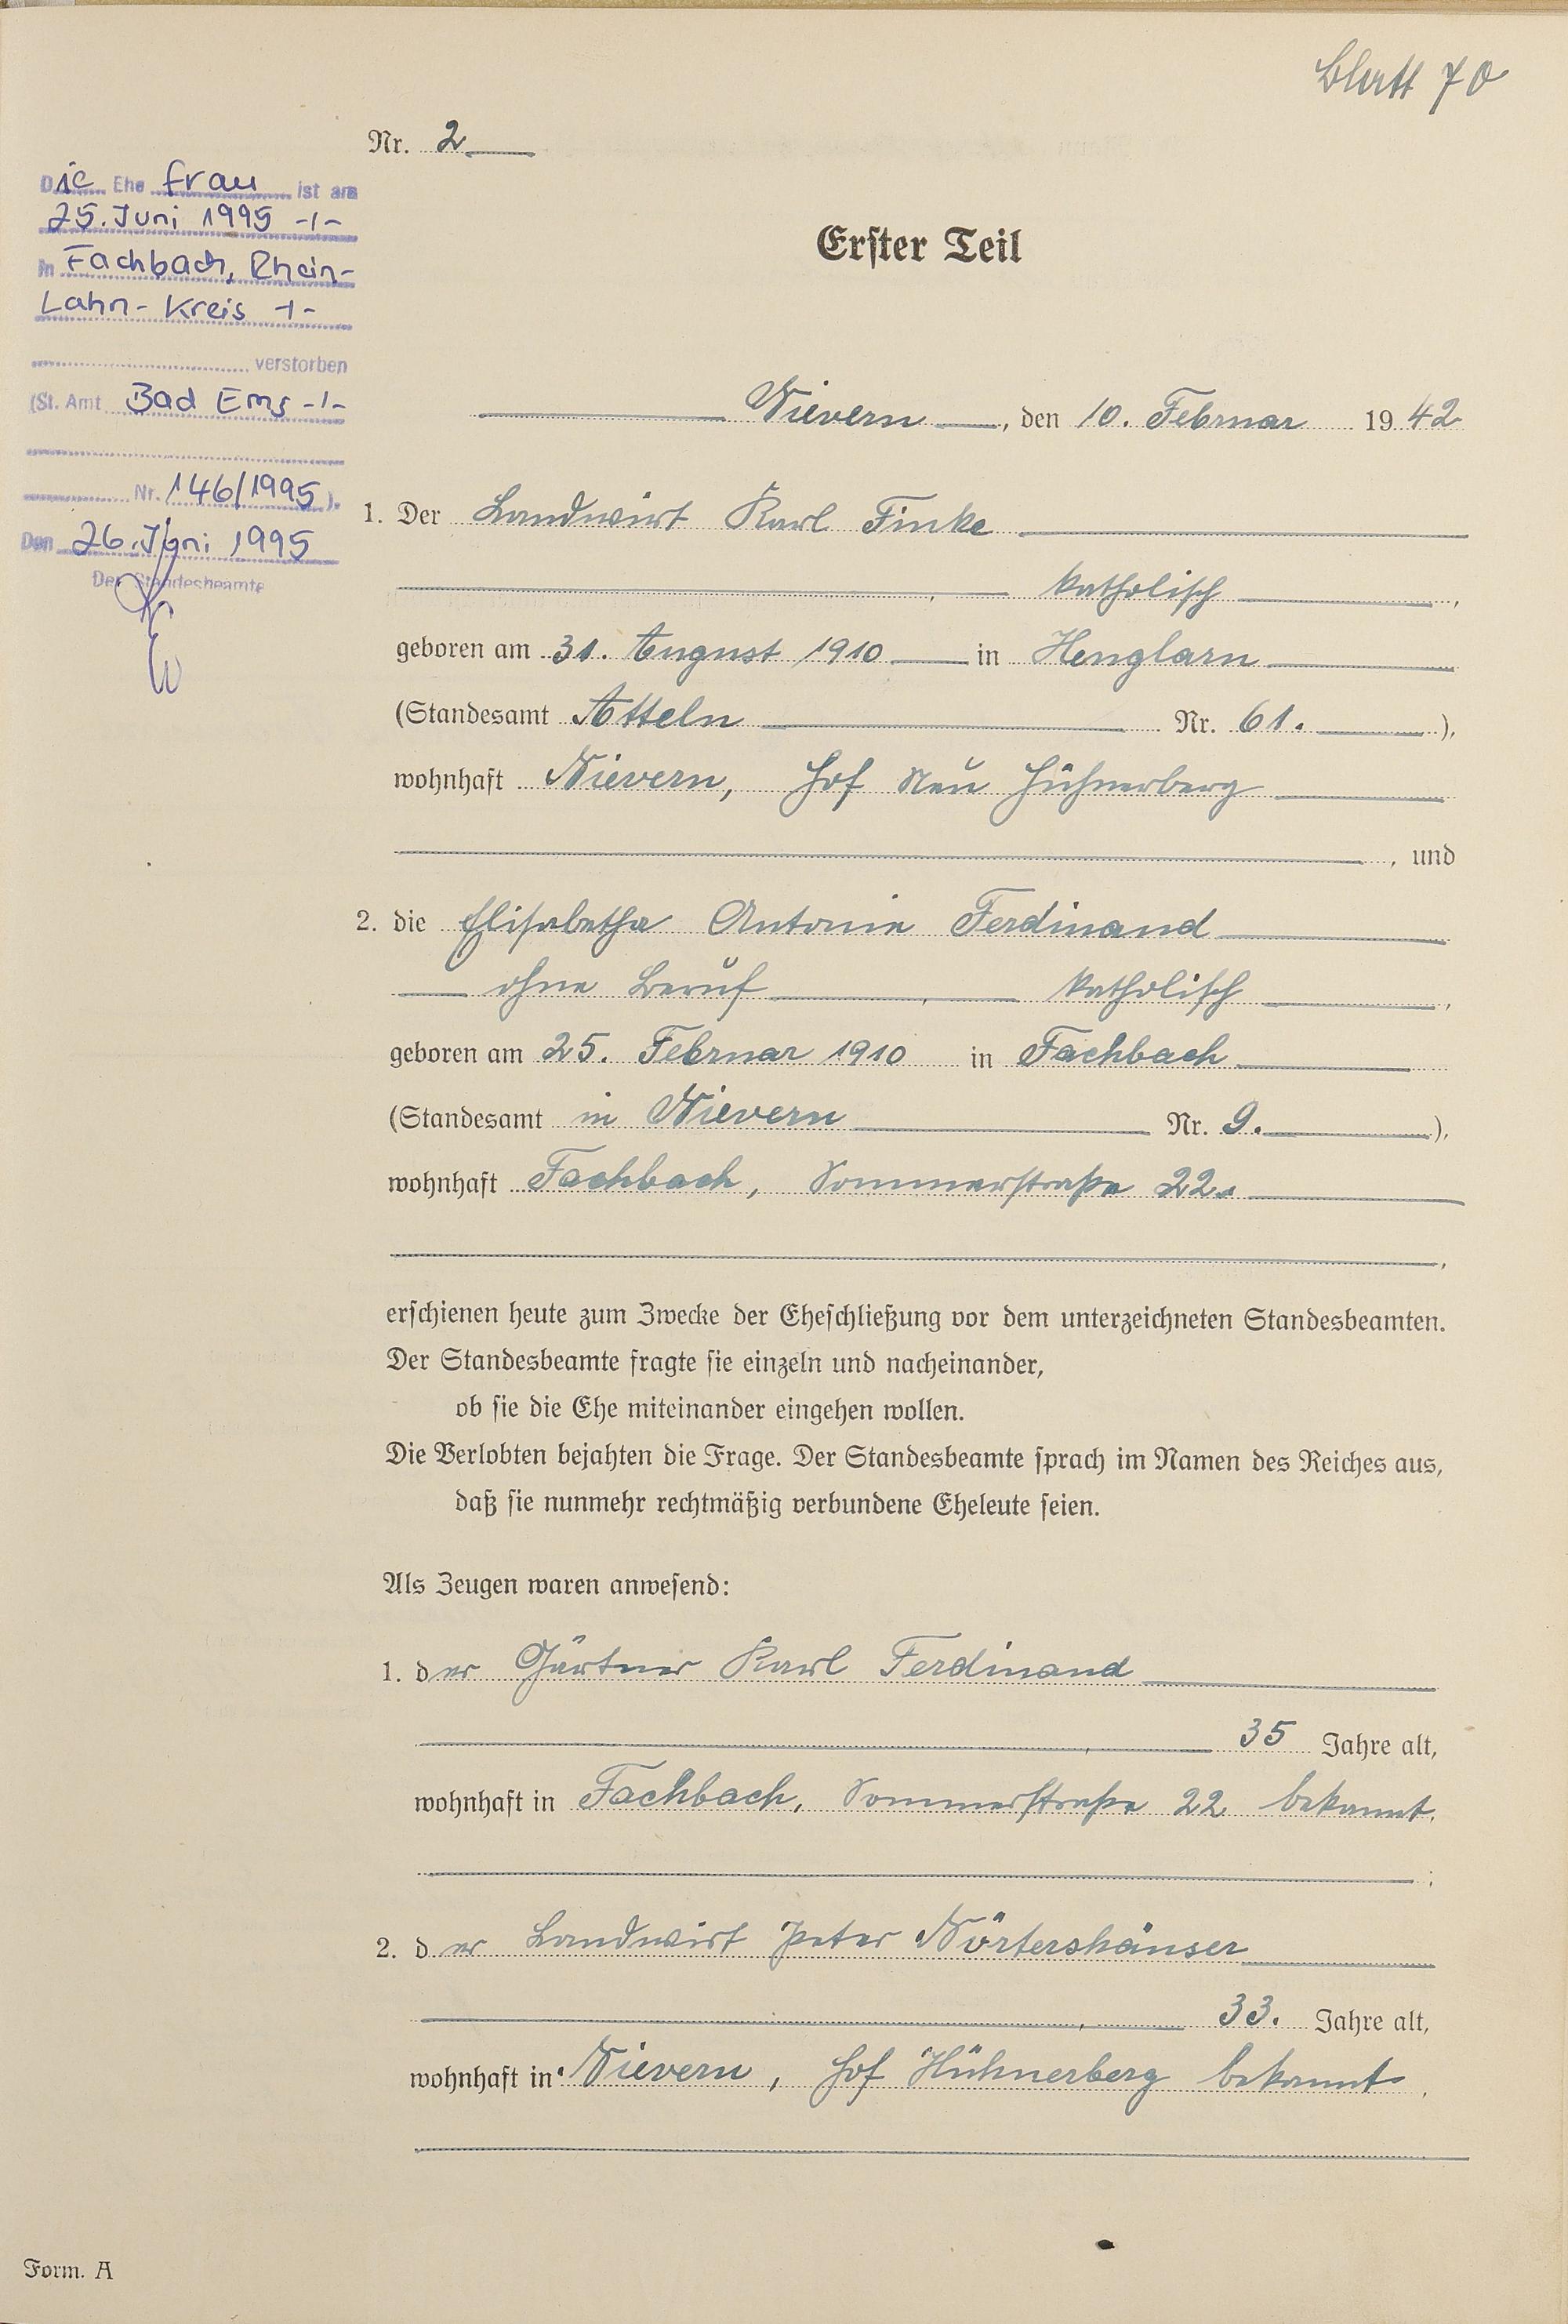 Blatt 70
Nr. 2
Die Ehe frau ist am
25. Juni 1995 -/-
in Fachbach, Rhein-
Lahn-Kreis -/-
verstorben
(St. Amt Bad Ems -/-
Nr. 146/1995).
Den 26. Juni 1995
Der Standesbeamte
Erster Teil
Nievern, den 10. Februar 1942
1. Der Landwirt Karl Finke
, katholisch,
geboren am 31. August 1910 in Henglarn
(Standesamt Atteln Nr. 61.),
wohnhaft Nievern, Hof Neu Hühnerberg
, und
2. die Elisabetha Antonie Ferdinand
ohne Beruf, katholisch,
geboren am 25. Februar 1910 in Fachbach
(Standesamt in Nievern Nr. 9.),
wohnhaft Fachbach, Sommerstraße 22.
,
erschienen heute zum Zwecke der Eheschließung vor dem unterzeichneten Standesbeamten.
Der Standesbeamte fragte sie einzeln und nacheinander,
ob sie die Ehe miteinander eingehen wollen.
Die Verlobten bejahten die Frage. Der Standesbeamte sprach im Namen des Reiches aus,
daß sie nunmehr rechtmäßig verbundene Eheleute seien.
Als Zeugen waren anwesend:
1. der Gärtner Karl Ferdinand
, 35 Jahre alt,
wohnhaft in Fachbach, Sommerstraße 22 bekannt.
;
2. der Landwirt Peter Nörtershäuser
, 33. Jahre alt,
wohnhaft in Nievern, Hof Hühnerberg bekannt.
Form. A